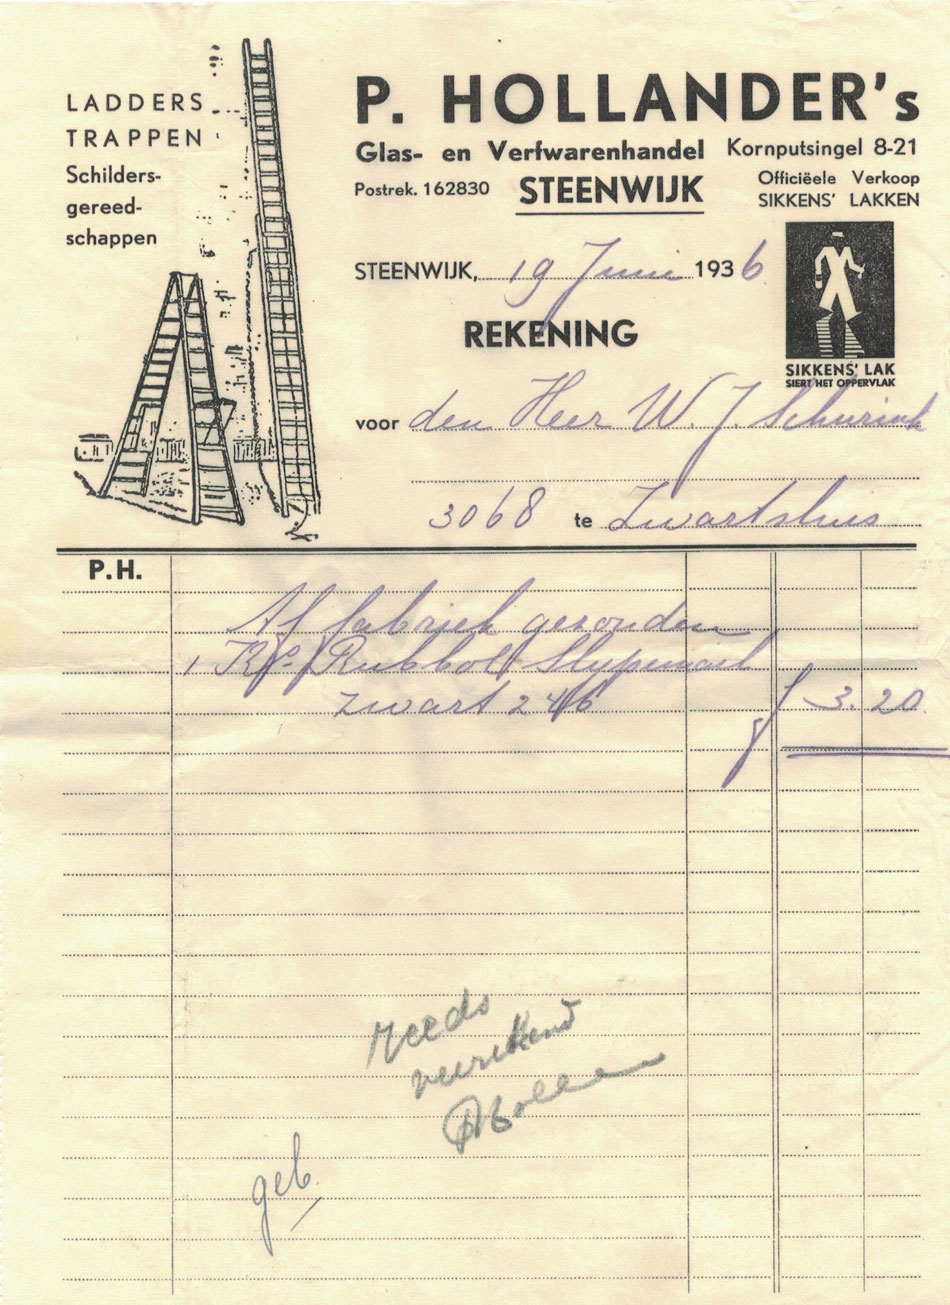 LADDERS
TRAPPEN
Schilders-
gereed-
schappen
P. HOLLANDER's
Glas- en Verfwarenhandel Kornputsingel 8-21
Postrek. 162830 STEENWIJK Officiëele Verkoop
SIKKENS' LAKKEN
STEENWIJK, 19 Juni 1936
REKENING
SIKKENS' LAK
SIERT HET OPPERVLAK
voor den Heer W. J. Schurink
3068 te Zwartsluis
P.H.
Af fabriek gezonden
1 Rubbol Slijpemail
zwart 246 f 3.20
reeds
verrekend
geb.